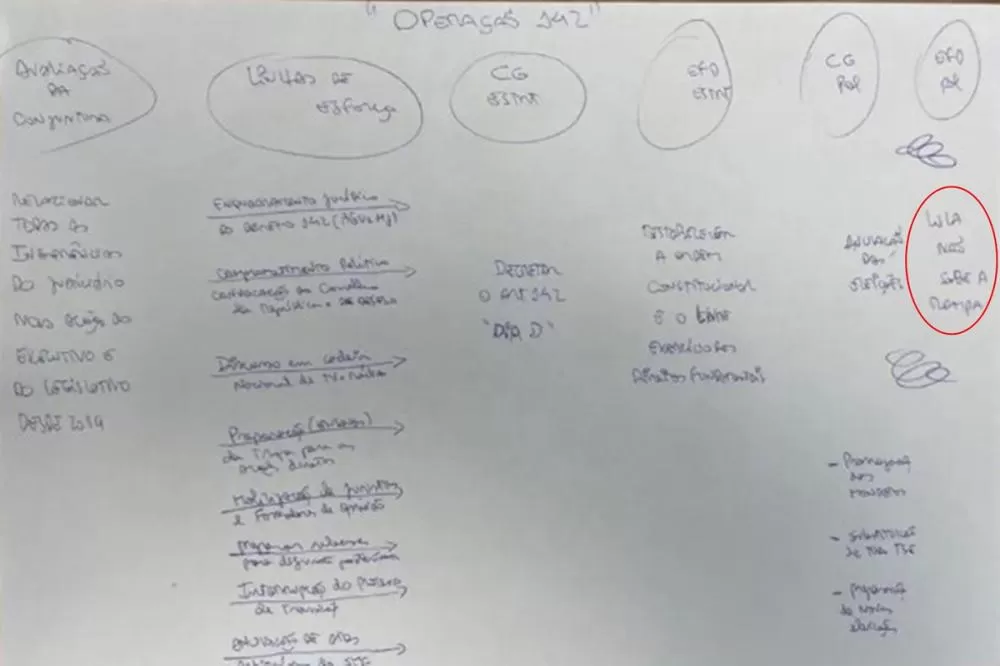 "OPERAÇÃO 142"
AVALIAÇÃO
DA
CONJUNTURA
LINHAS DE
ESFORÇO
CG
ESTRT
EFD
ESTRT
CG
POL
EFD
POL
RELACIONAR
TODAS AS
INTERFERÊNCIAS
DO JUDICIÁRIO
NAS AÇÕES DO
EXECUTIVO E
DO LEGISLATIVO
DESDE 2019
ENQUADRAMENTO JURÍDICO
DO DECRETO 142 (AGU e MJ)
COMPROMETIMENTO POLÍTICO
CONVOCAÇÃO DO CONSELHO
da República e da DEFESA
Discurso em cadeia
Nacional de TV e Rádio
Preparação
da Tropa para as
ações diretas
Mobilização de juristas
e Formadores de opinião
Interrupção do Processo
de Transição
ANULAÇÃO DE ATOS
DECRETAR
O ART 142
"DIA D"
RESTABELECER
A ORDEM
CONSTITUCIONAL
E O LIVRE
EXERCÍCIO DOS
DIREITOS FUNDAMENTAIS
ANULAÇÃO
DAS
ELEIÇÕES
LULA
NÃO
SOBE A
RAMPA
- Prorrogação
dos
MANDATOS
- SUBSTITUIÇÃO
de TODO TSE
- Preparação
de Novas
eleições